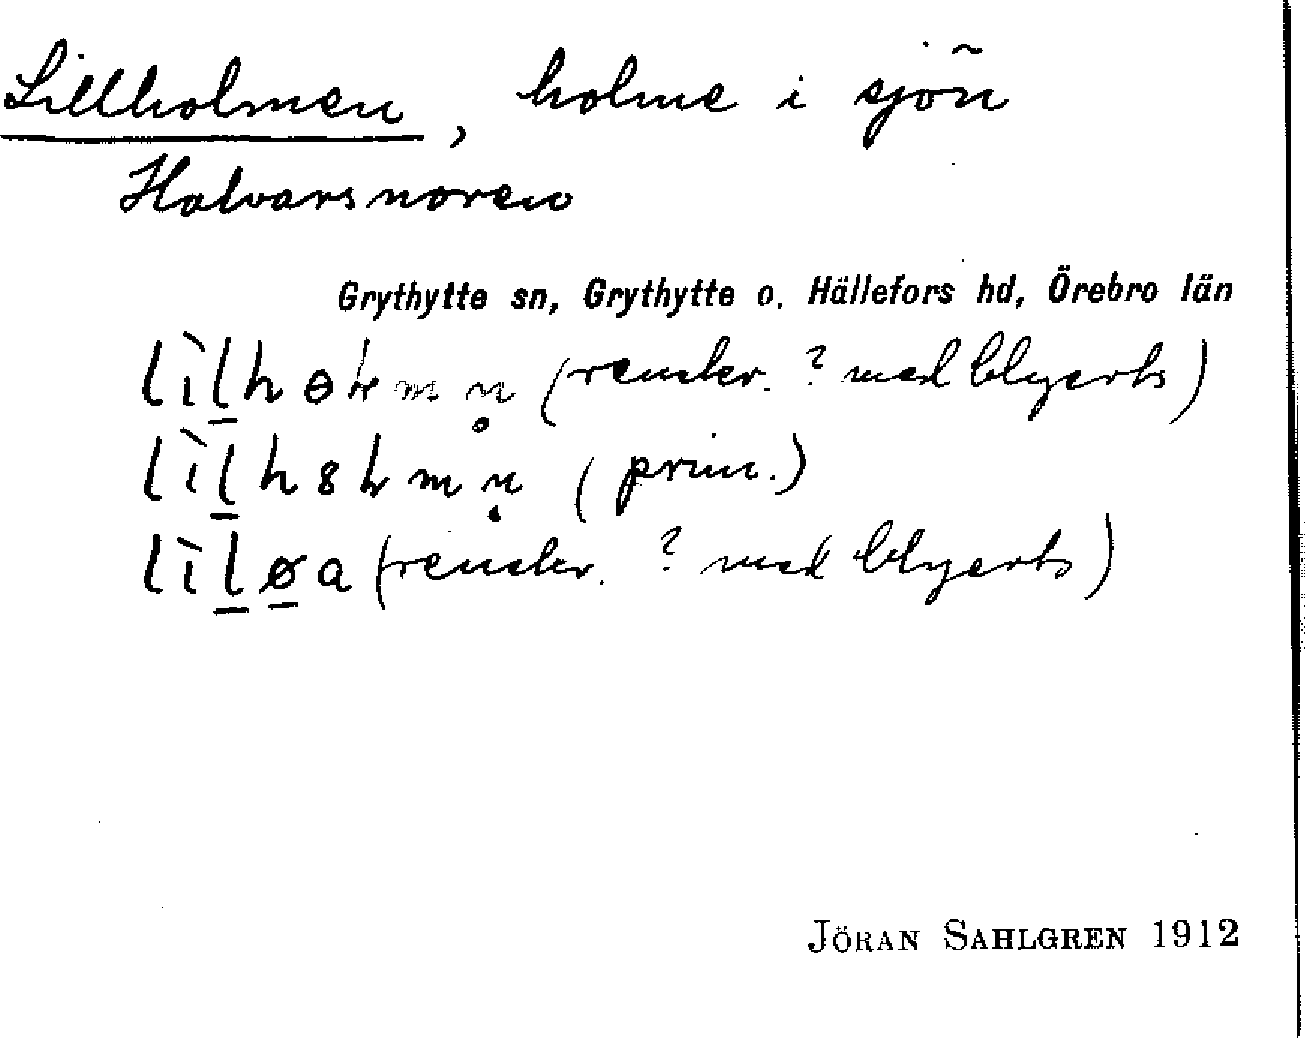 Lillholmen, holme i sjön
Halvarsnoren
Grythytte sn, Grythytte o. Hällefors hd, Örebro län
(renskr. ? med blyerts)
(prim.)
(renskr. ? med blyerts)
JÖRAN SAHLGREN 1912